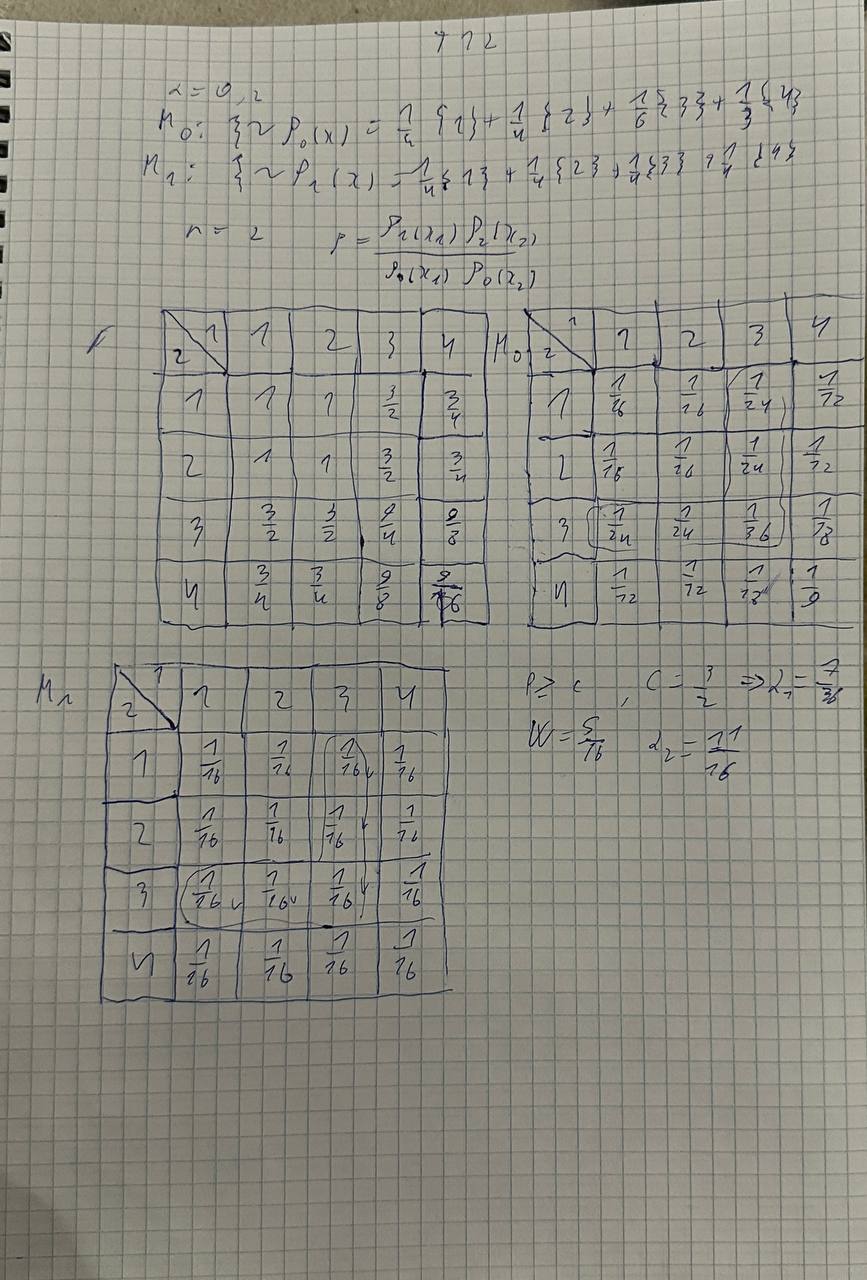 T 12
α = 0,2
H₀: ξ ~ P₀(x) = 1/4 {1} + 1/4 {2} + 1/6 {3} + 1/3 {4}
H₁: ξ ~ P₁(x) = 1/4 {1} + 1/4 {2} + 1/4 {3} + 1/4 {4}
n = 2 ρ = P₁(x₁) P₁(x₂) / P₀(x₁) P₀(x₂)
2\1 1 2 3 4
1 1 1 3/2 3/4
2 1 1 3/2 3/4
3 3/2 3/2 9/4 9/8
4 3/4 3/4 9/8 9/16
H₀
2\1 1 2 3 4
1 1/16 1/16 1/24 1/12
2 1/16 1/16 1/24 1/12
3 1/24 1/24 1/36 1/18
4 1/12 1/12 1/18 1/9
H₁
2\1 1 2 3 4
1 1/16 1/16 1/16 1/16
2 1/16 1/16 1/16 1/16
3 1/16 1/16 1/16 1/16
4 1/16 1/16 1/16 1/16
ρ ≥ c , C = 3/2 ⇒ α₁ = 7/36
W = 5/16 α₂ = 11/16